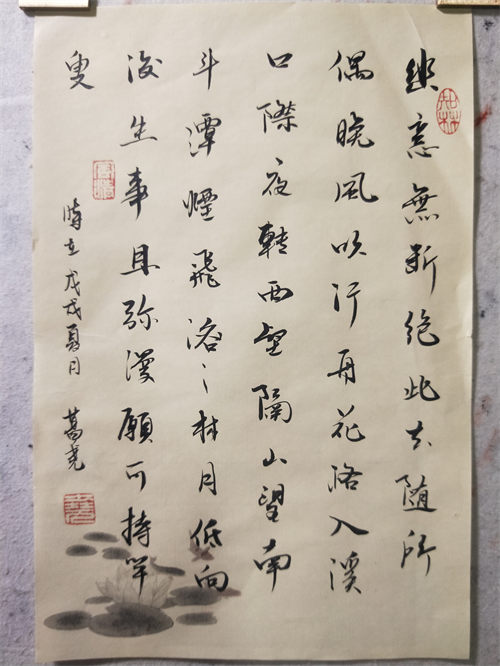 幽意無斷絕此去随所
偶晚風吹行舟花路入溪
口際夜轉西壑隔山望南
斗潭煙飛溶々林月低向
後生事且弥漫願为持竿
叟
時在戊戌夏月